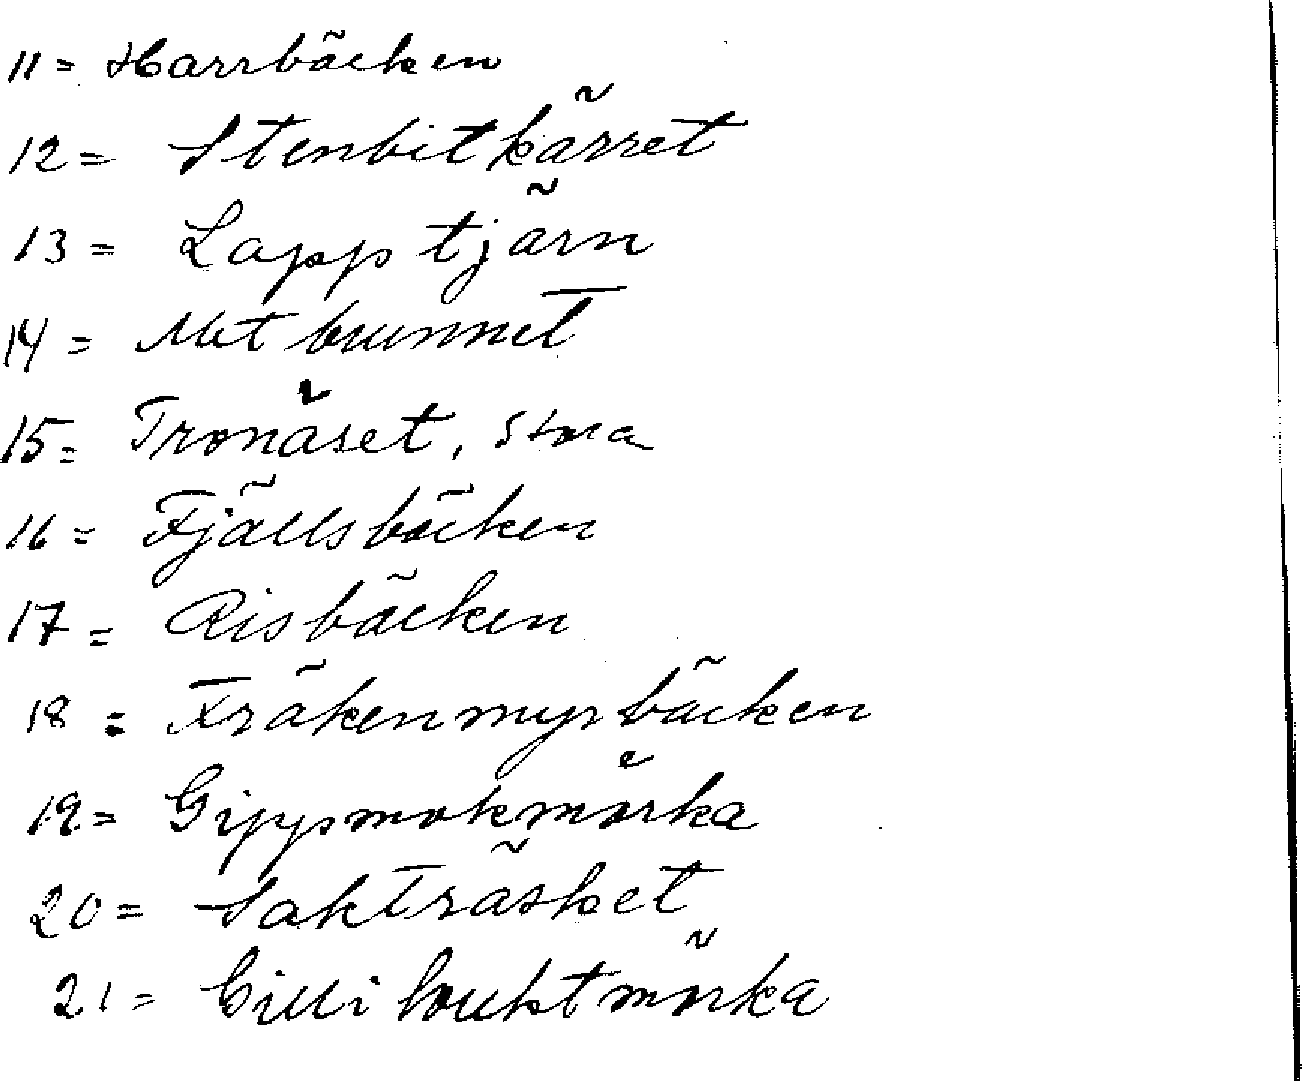 11 = Harrbäcken
12 = Stenbitkärret
13 = Lapptjärn
14 = Metbrunnet
15 = Tronåset, Stora
16 = Fjällsbäcken
17 = Risbäcken
18 = Fräkenmyrbäcken
19 = Gippsmokmörka
20 = Sakträsket
21 =